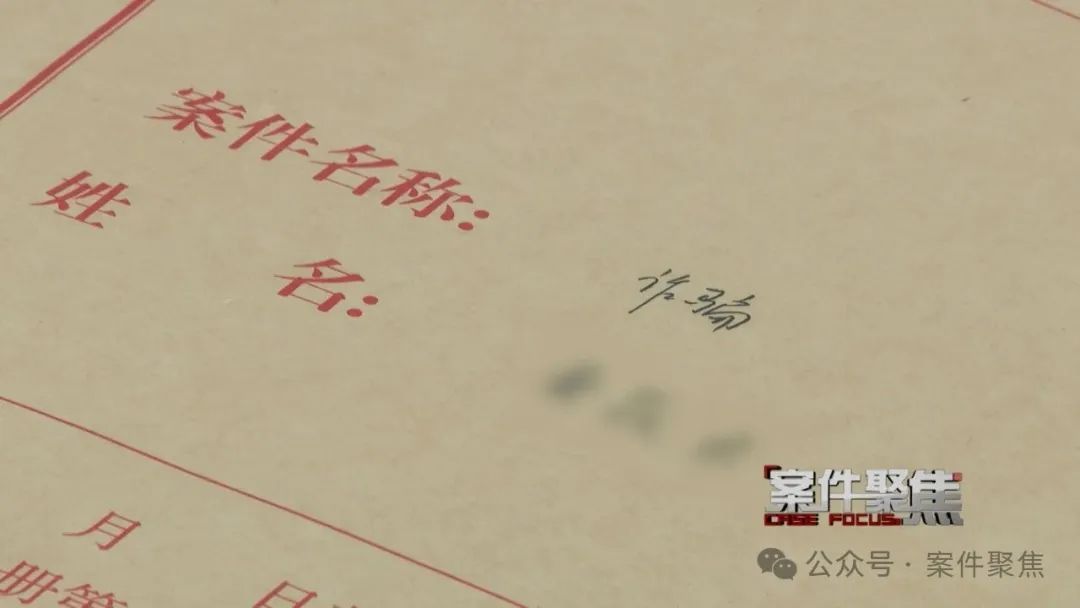 案件名称：
诈骗
姓名：
月
日
册第
案件聚焦
CASE FOCUS
公众号·案件聚焦